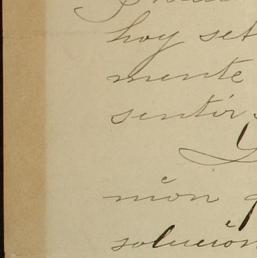 hoy set
mente
sentir
món
solución